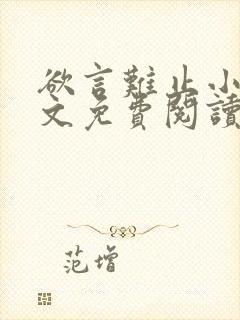 欲言難止小
文免費閱讀
范增